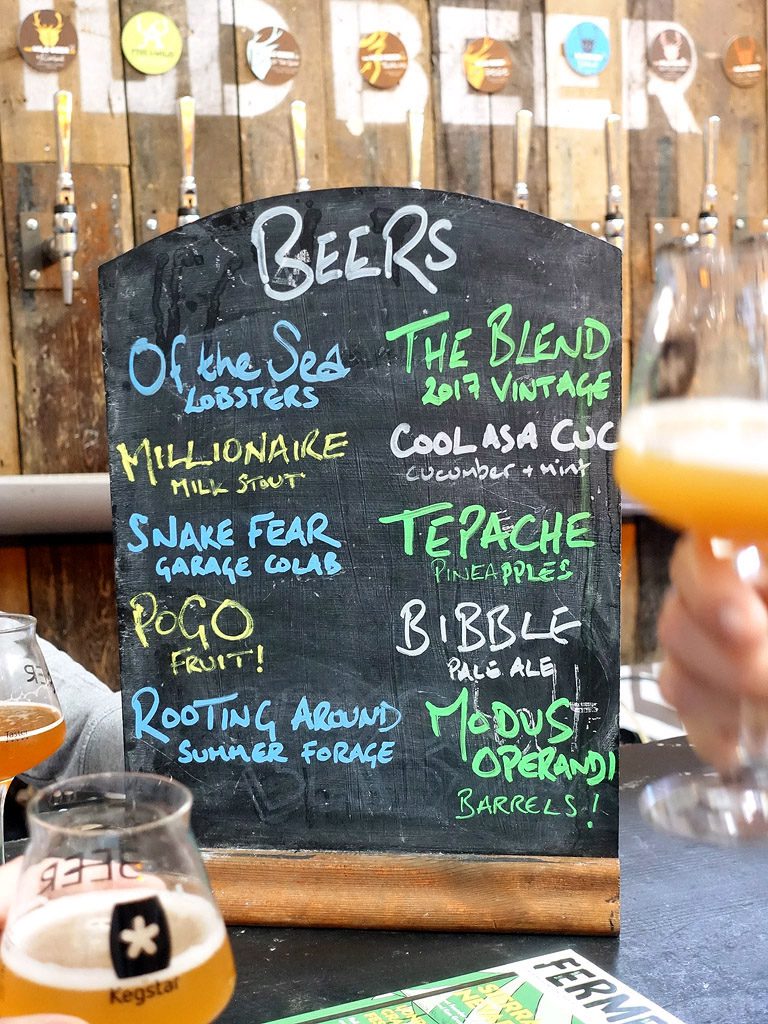 BEER
BEERS
Of the Sea
LOBSTERS
MILLIONAIRE
MILK STOUT
SNAKE FEAR
GARAGE COLAB
POGO
FRUIT!
ROOTING AROUND
SUMMER FORAGE
THE BLEND
2017 VINTAGE
COOL AS A CUC
CUCUMBER + MINT
TEPACHE
PINEAPPLES
BIBBLE
PALE ALE
MODUS
OPERANDI
BARRELS!
BEER
Kegstar
FERME
SIERRA